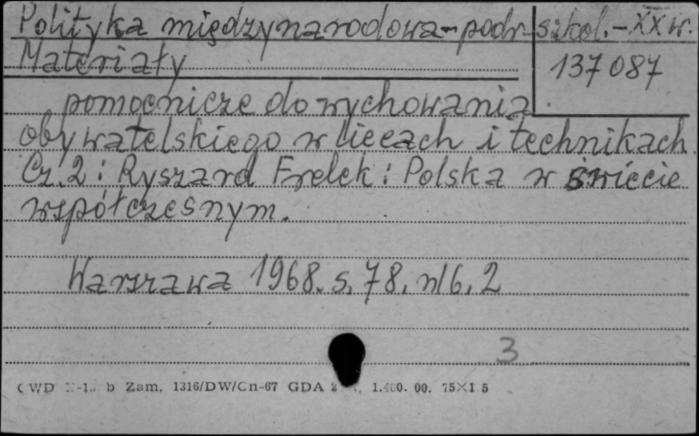 Polityka międzynarodowa - podr. szkol. - XX w.
Materiały
137 087
pomocnicze do wychowania
obywatelskiego w liceach i technikach.
Cz. 2: Ryszard Frelek: Polska w świecie
współczesnym.
Warszawa 1968. s. 78, nlb. 2
3
Zam. 1316/DW/Cn-67 GDA